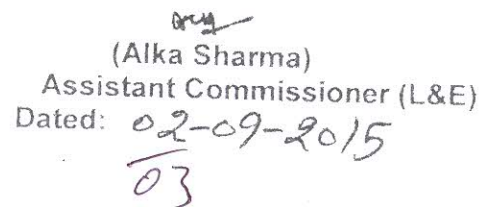 (Alka Sharma)
Assistant Commissioner (L&E)
Dated: 02-09-2015
03